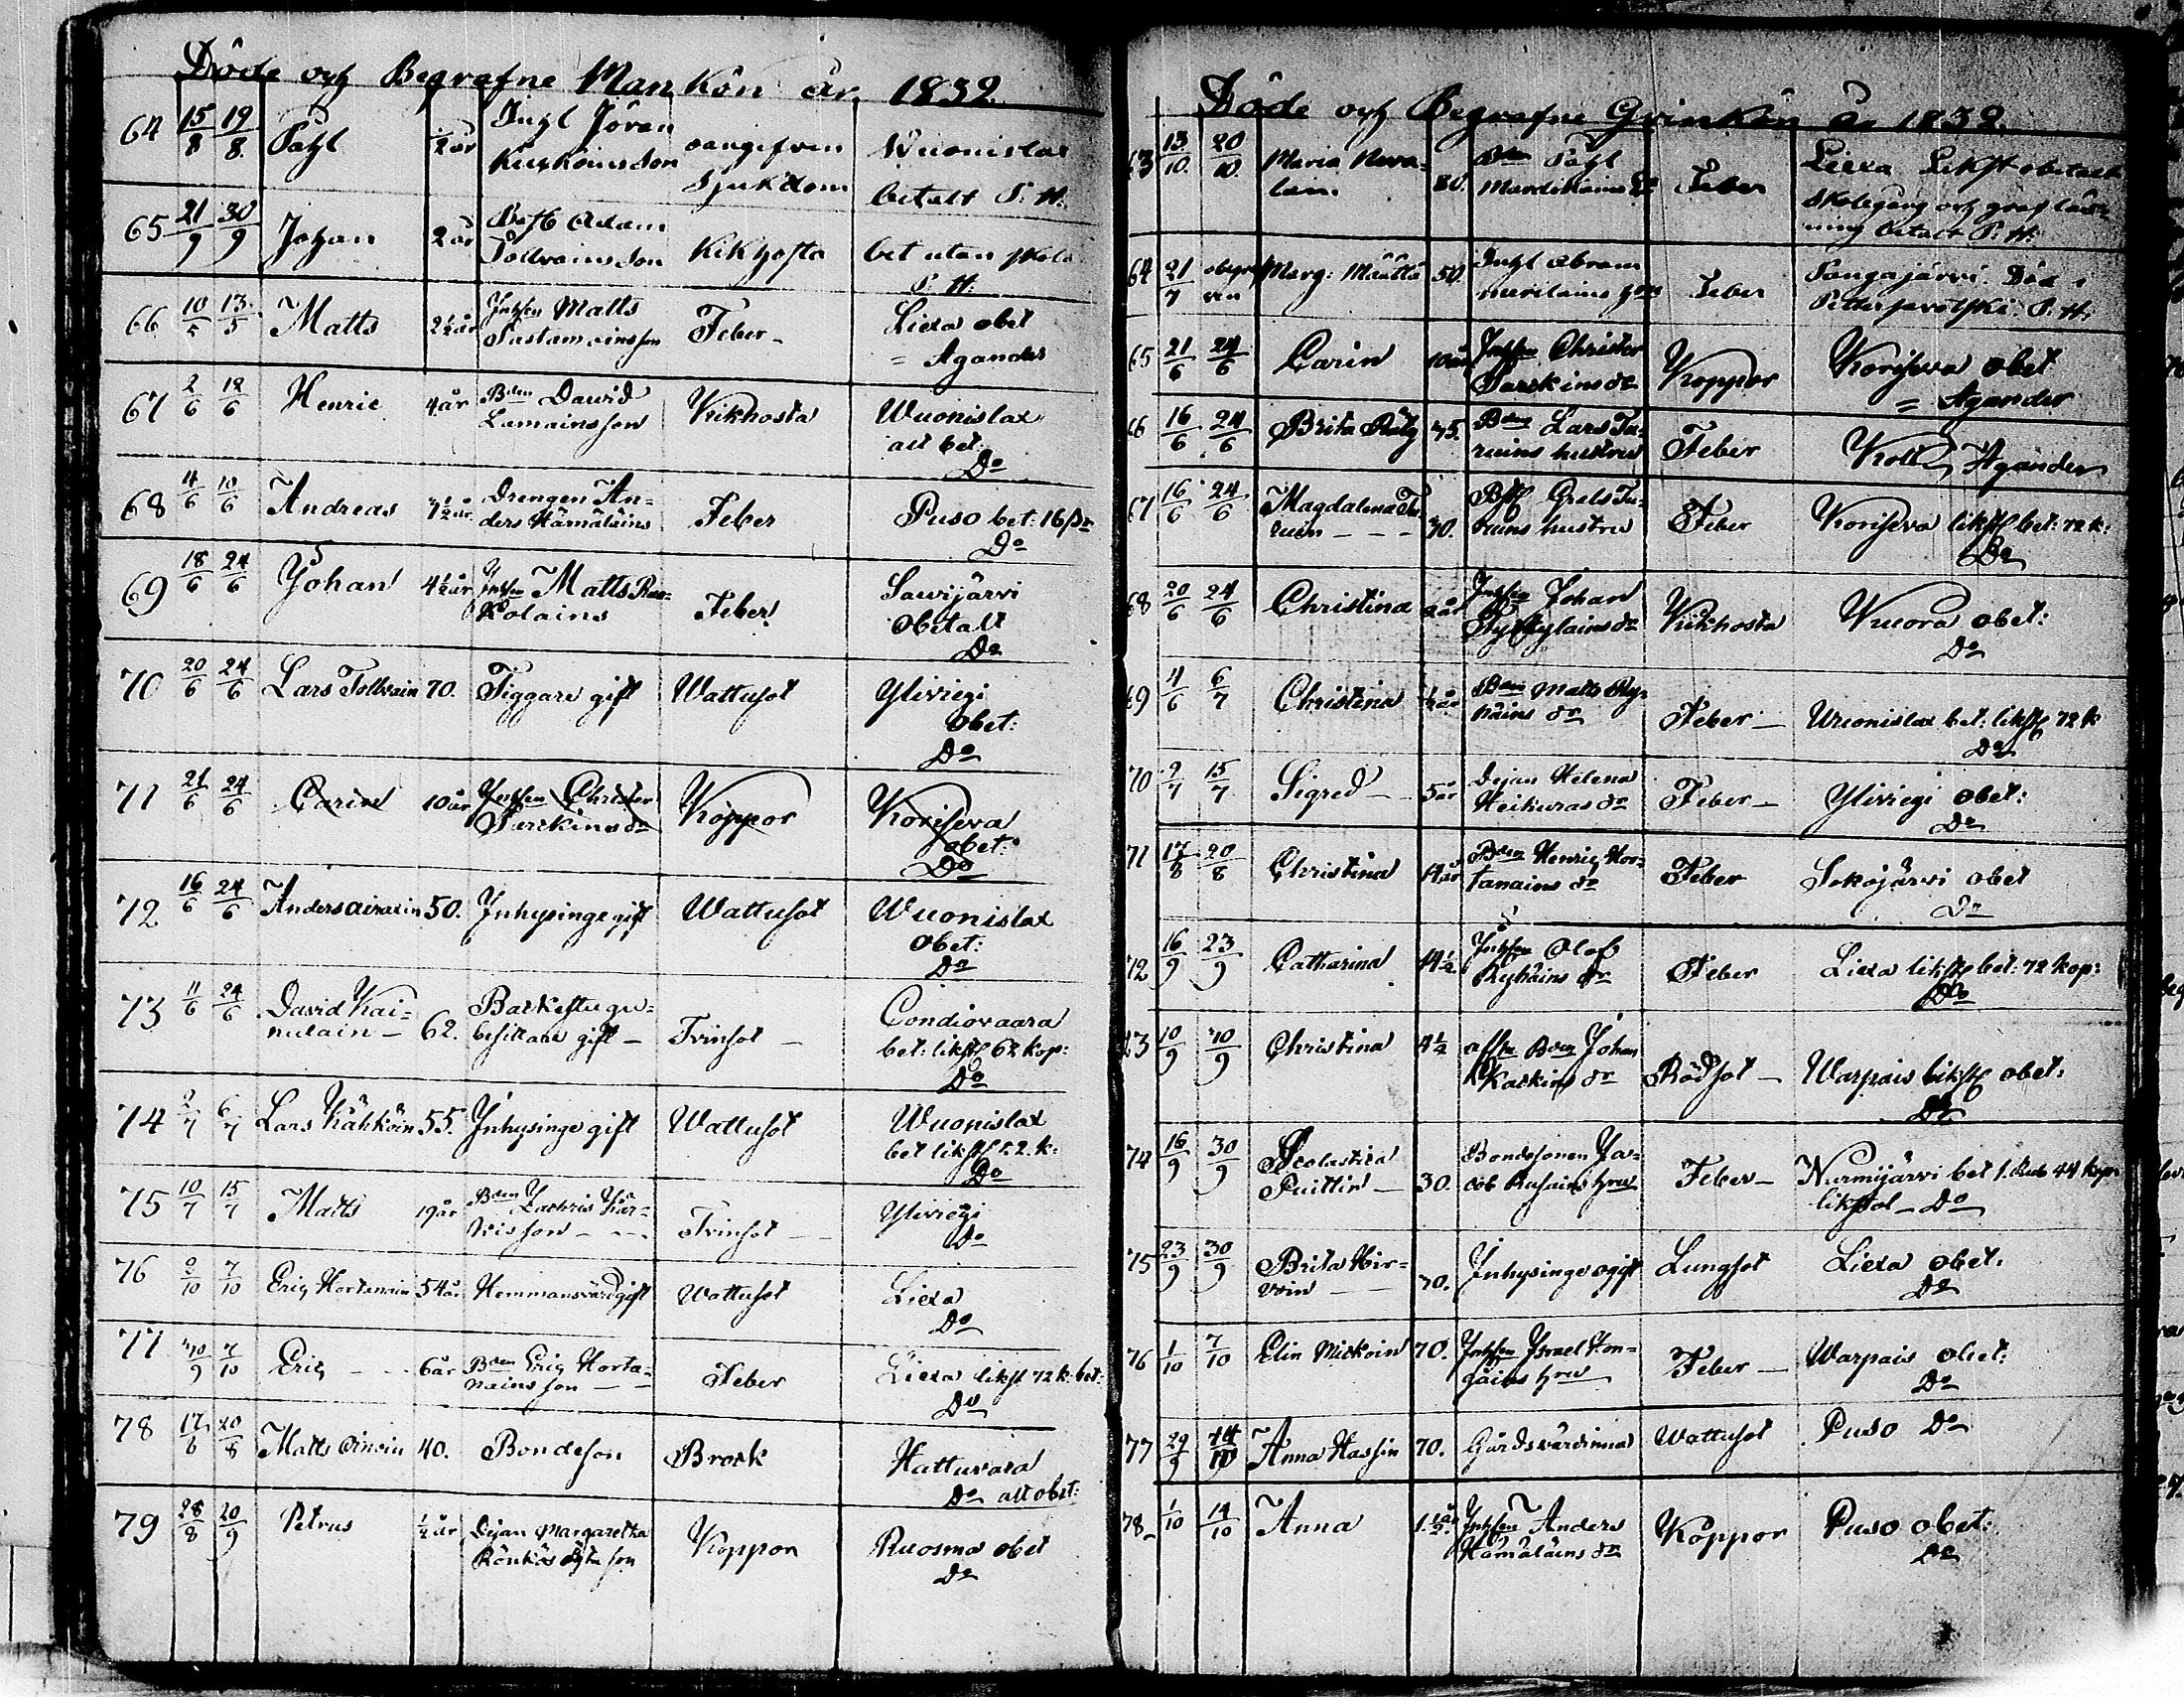 Döde och Begrafne Mankön år 1832.
64 15/8 19/8 Påhl ½ år Inhl Jöran
Kurkoins Son oangifven
Sjukdom Wuonislax
betalt P. H.
65 21/9 30/9 Johan 2 år Adam
Tollvains Son Kikhosta bet utan
P. H.
66 10/5 13/5 Matts 2½ år Inhsen Matts
Tastamoinsson Feber Liexa obet
= Agander
67 2/6 12/6 Henric 4 år Bden David
Lamainsson Kikhosta Wuonislax
alt bet:
Do
68 4/6 10/6 Andreas 7½ år Drengen An-
ders Hämäläins Feber Puso bet: 16
Do
69 18/6 24/6 Johan 4½ år Inhsen Matts
kolains Feber Sawijärvi
Obetalt
Do
70 20/6 24/6 Lars Tollvain 70. Tiggare gift Wattusot Yliviegi
obet:
Do
71 21/6 24/6 Carin 10 år Inhsen Christer
Turkins dr Koppor Koriseva
obet:
Do
72 16/6 24/6 Anders 50. Inhysinge gift Wattusot Wuonislax
Obet:
Do
73 11/6 24/6 David Kai-
nulain — 62. Backstugu-
besittare gift — Tvinsot — Condiovaara
bet: likst 62 kop:
Do
74 2/7 6/7 Lars Kähköin 55. Inhysinge gift Wattusot Wuonislax
bet likst
Do
75 10/7 15/7 Matts 19 år Bden Zachris Kar-
visson — — Tvinsot — Yliviegi
Do
76 2/10 7/10 Eric Hortanain 54 år Hemmansvärd gift Wattusot Liexa
Do
77 30/9 7/10 Eric — 6 år Bden Eric Horta-
nains son — — Feber Liexa likst 72 k: bet:
Do
78 17/6 20/8 Matts Oinoin 40. Bondeson Brock Hattuvara
Do alt obet:
79 28/8 20/9 Petrus ½ år Dejan Margaretha
son Koppor Ruosma obet
Do
Döde och Begrafne Qvinkön år 1832.
63 13/10. 20/10. Maria Neva-
lain. 80. Bden Påhl
Mardikains Feber Liexa Likst obetalt
och graf
ning betalt P. H.
64 21/7 obegraf
ven Marg: Määttä 50. Inhl Abram
hru Feber Pangajärvi. Död i
P. H.
65 21/6 24/6 Carin 10 år Inhsen Christer
Turkins dr Koppor Koriseva obet
= Agander
66 16/6 24/6 Brita 75. Bden Lars Tu-
ruins hustru Feber Agander
67 16/6 24/6 Magdalena Tu-
ruin — — — 30. Grels Tu-
ruins hustru Feber Koriseva likst bet: 72 k:
Do
68 20/6 24/6 Christina 2 år Inhsen Johan
Kyllyläins dr Kikhosta Wuora obet:
Do
69 4/6 6/7 Christina ½ år Bden Matts Ry-
häins dr Feber — Wuonislax bet: likst 72 k
Do
70 9/7 15/7 Sigred — 5 år Dejan Helena
Heikuras dr Feber — Yliviegi obet:
Do
71 17/8 20/8 Christina 14 år Bden Henric Hor-
tanains dr Feber Sokojärvi obet
Do
72 16/9 23/9 Catharina 4½ Inhsen Olof
Ryhäins dr Feber Liexa likst bet: 72 kop:
Do
73 10/9 30/9 Christina 4½ afl. Bden Johan
Karkins dr Rödsot — Warpais likst obet:
Do
74 16/9 30/9 Scolastica
Puittin — 30. Bondesonen Ja-
cob hru Feber — Nurmijärvi bet 1. Rub 44 kop
likstol — Do
75 23/9 30/9 Brita Hir-
voin — 70. Inhysinge ogift Lungsot Liexa obet:
Do
76 1/10 7/10 Elin Mickoin 70. Inhsen Israel Kon-
gäins hru Feber — Warpais obet:
Do
77 29/9 14/10 Anna Hassin 70. Gårdsvärdinna Wattusot Puso Do
78 — 1/10 14/10 Anna 1½ år Inhsen Anders
Hämäläins dr Koppor Puso obet:
Do